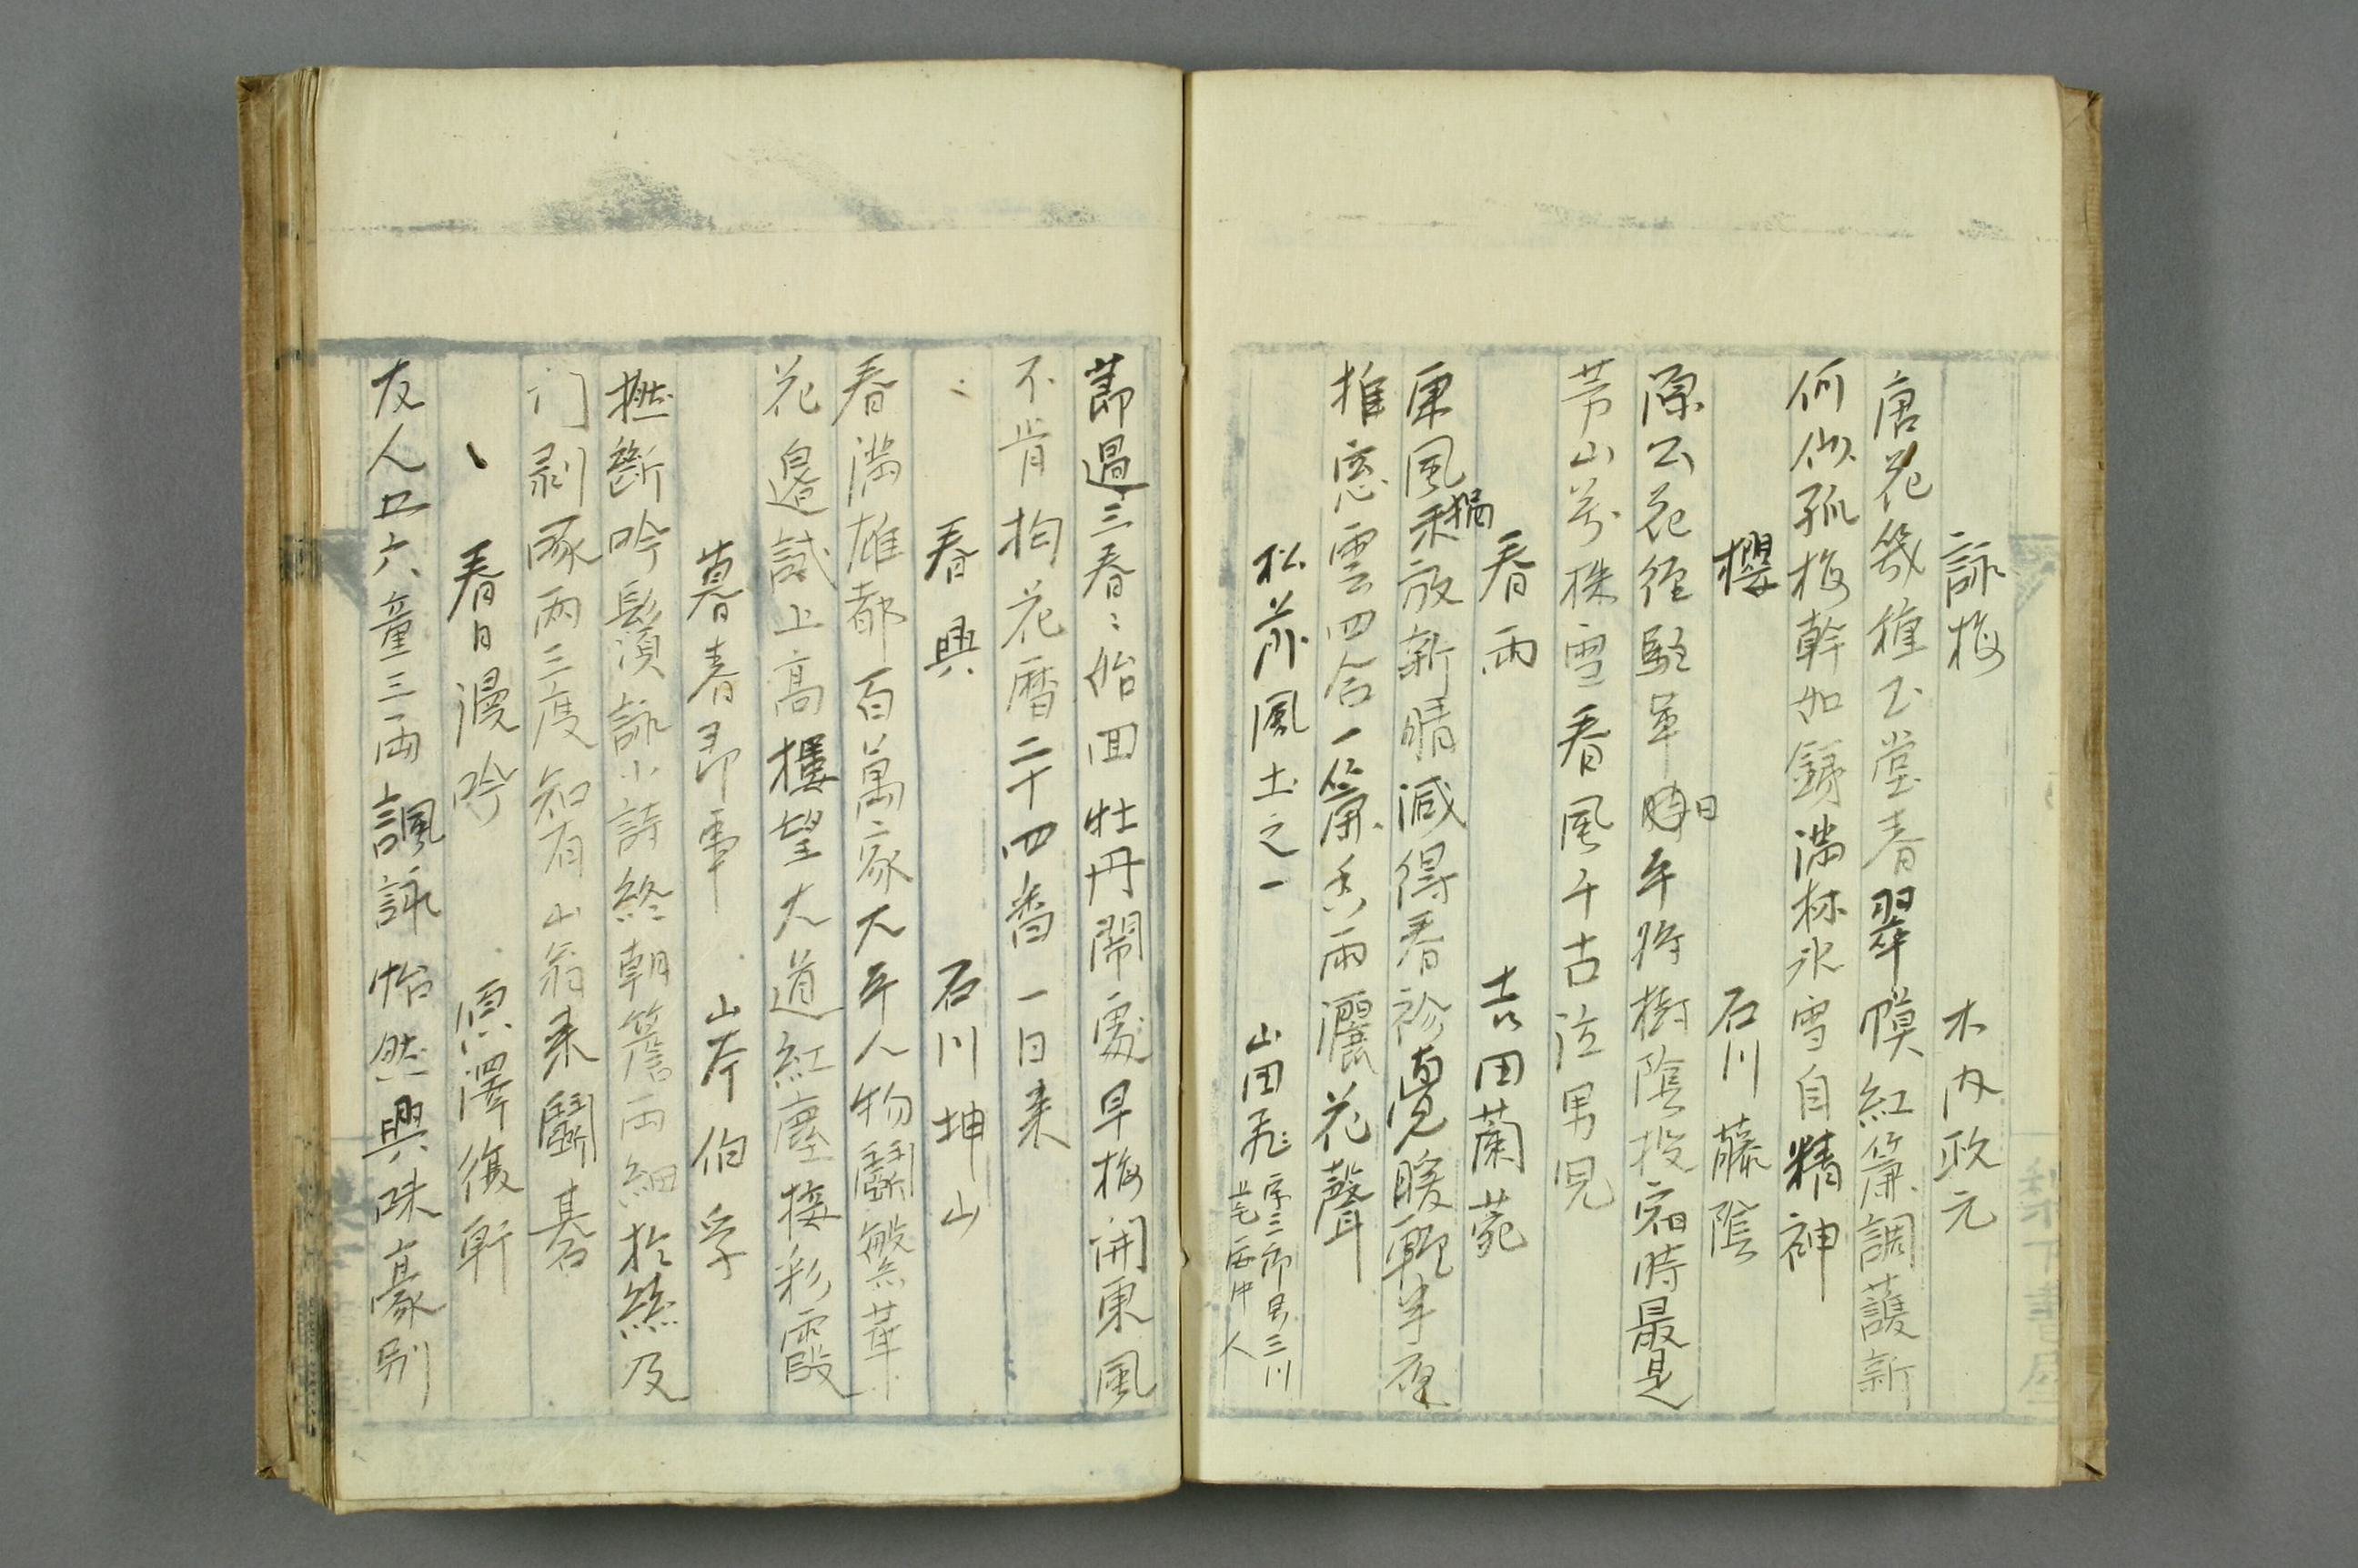 詠梅 木内政元
唐花幾種玉堂春翠幙紅簾調護新
何似孤梅幹如鐵満林氷雪自精神
櫻 石川藤陰
源公花径駐軍日午将樹陰投宿時最是
芳山万株雪春風千古泣男児
春雨 吉田蘭苑
東風猶未放新晴減得春衫覚暖軽半夜
推窓雲四合一簾香雨灑花聲
松前風土之一 山田飛 字三郎号三川 上毛安中人
節過三春々始回牡丹開處早梅開東風
不肯拘花暦二十四番一日来
〻 春興 石川坤山
春満雄都百萬家大平人物鬪繁華
花邉試上高樓望大道紅塵接彩霞
暮春即事 山本伯孚
撚断吟鬚詠小詩終朝簷雨細於絲及
门剥啄両三度知有山翁来鬪碁
春日漫吟 原澤復軒
友人五六童三両諷詠怡然興味豪別